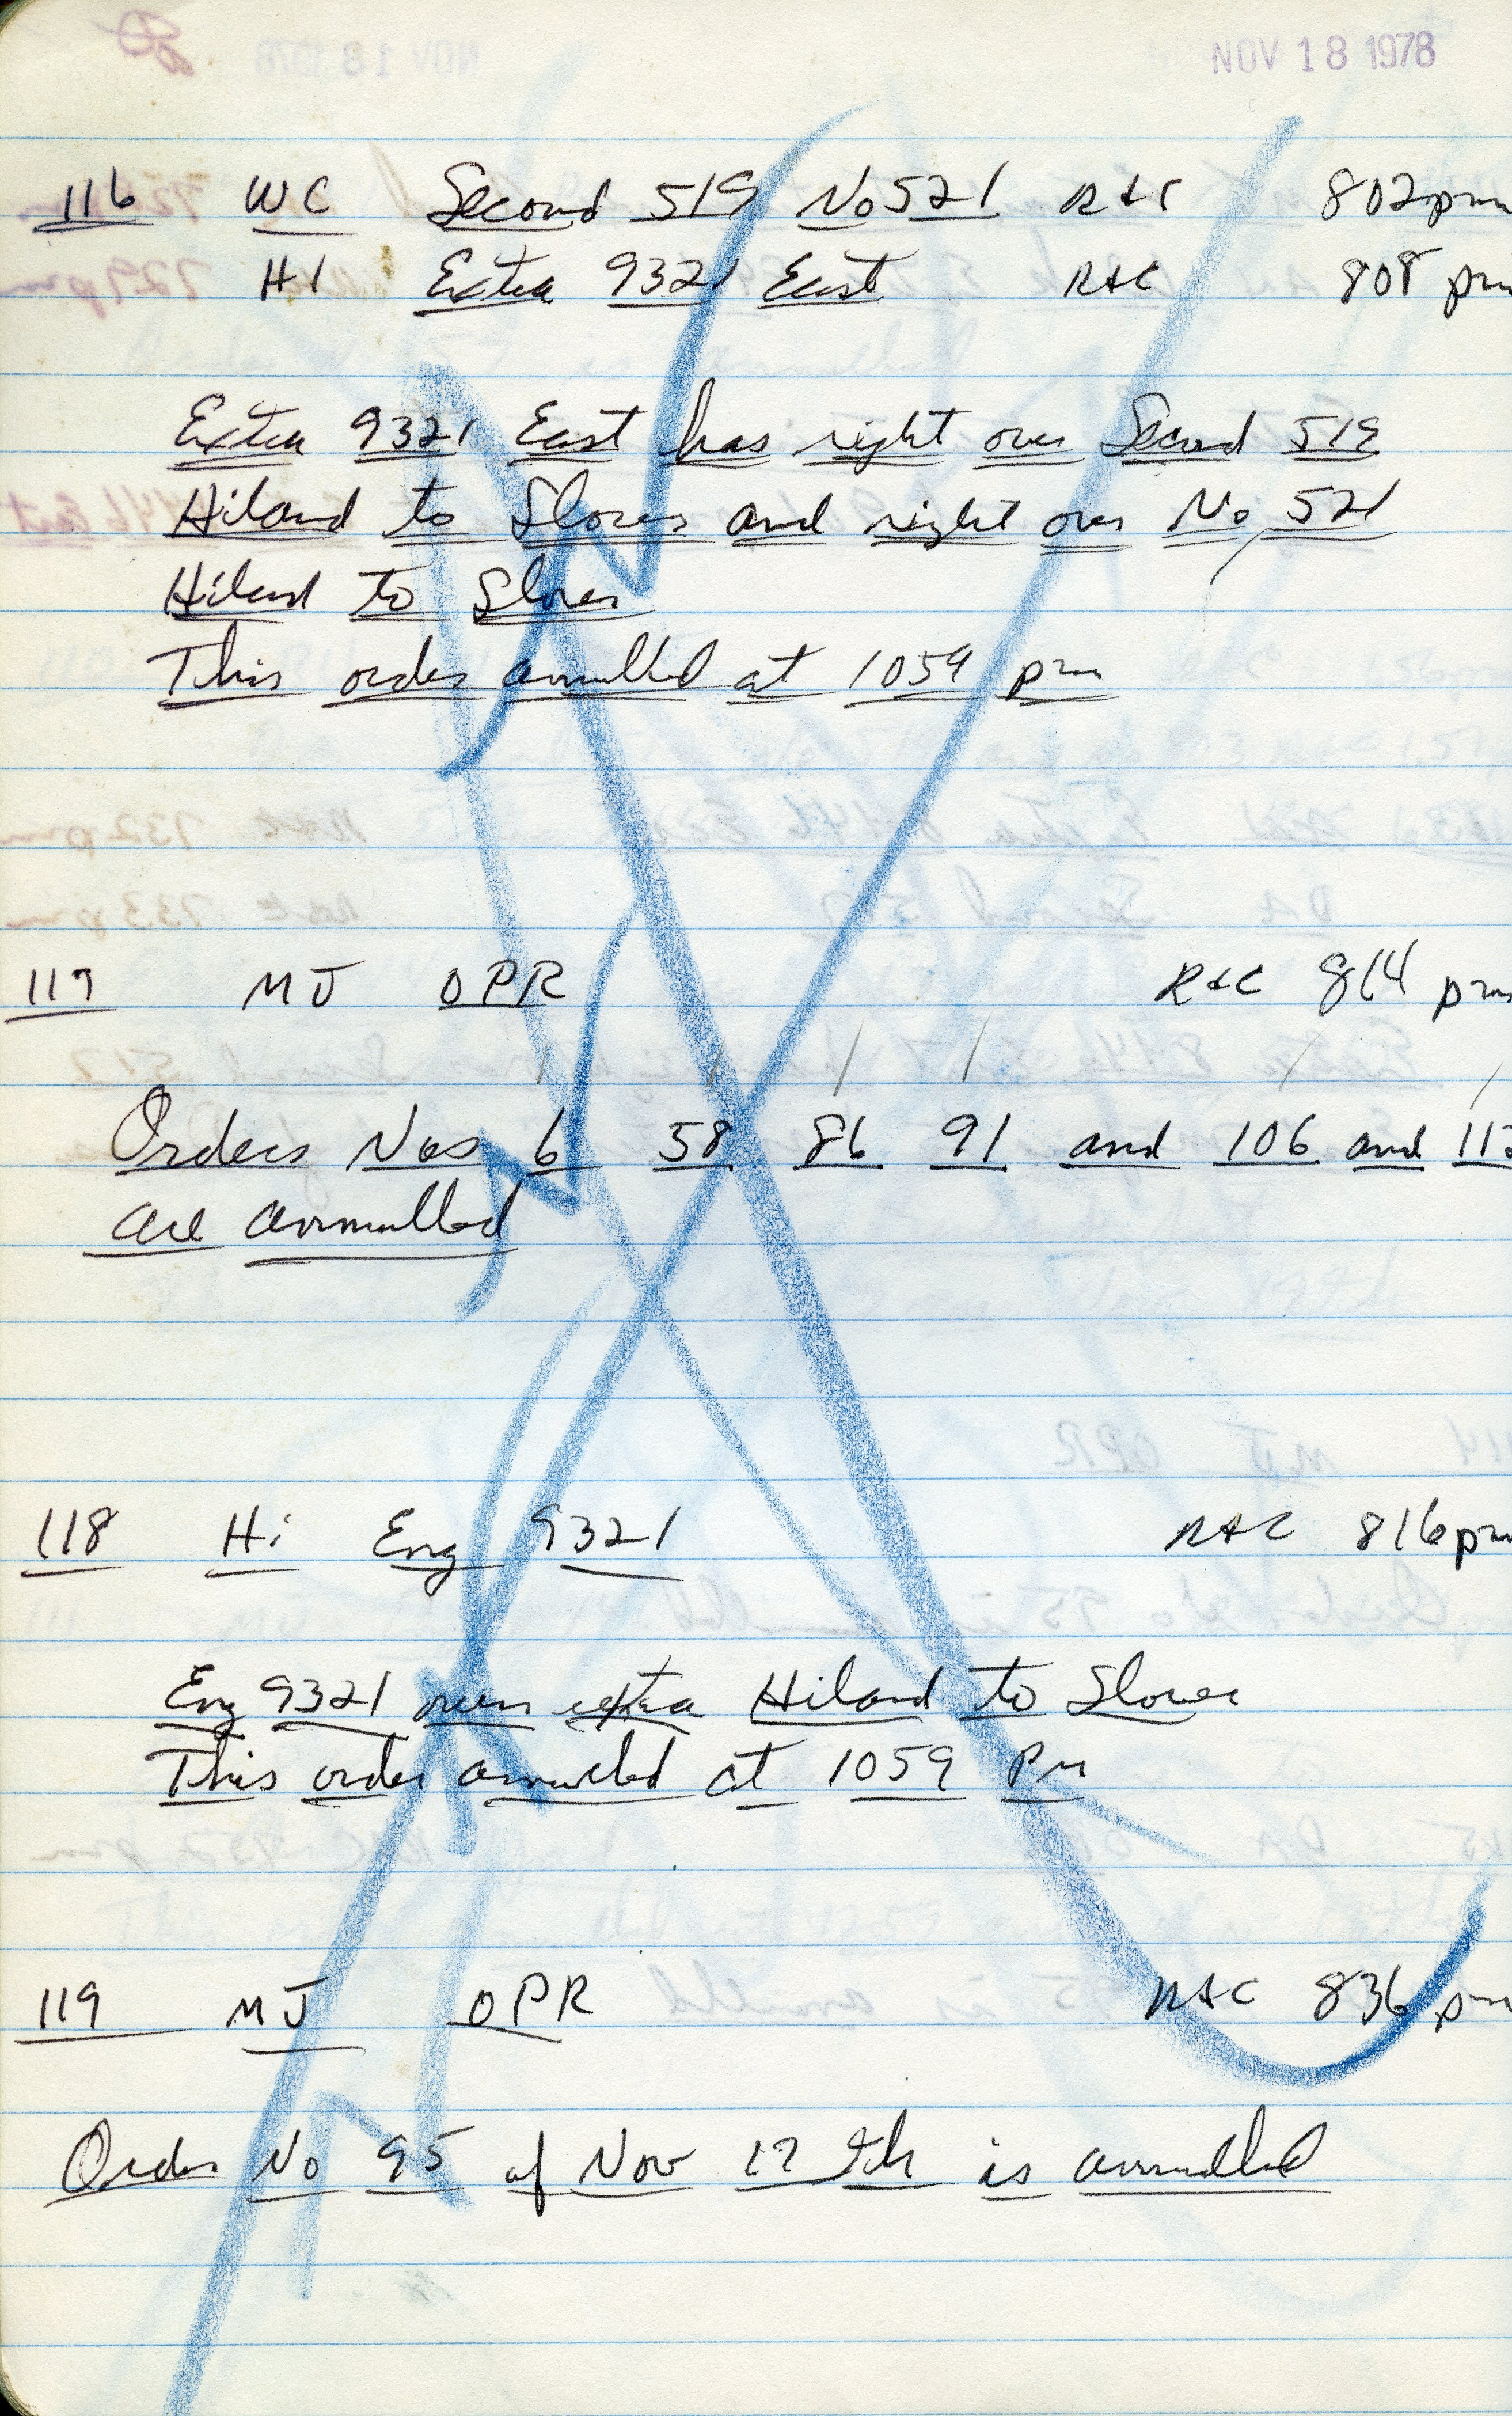 NOV 18 1978
116 WC Second 519 No 521 R&C 802 pm
HI Extra 9321 East R&C 808 pm
Extra 9321 East has right over Second 519
Hiland to Slover and right over No 521
Hiland to Slover
This order annulled at 1059 pm
117 MJ OPR R&C 814 pm
Orders Nos 6 58 86 91 and 106 and
are annulled
118 Hi Eng 9321 R&C 816 pm
Eng 9321 run extra Hiland to Slover
This order annulled at 1059 Pm
119 MJ OPR R&C 836 pm
Order No 95 of Nov 17th is annulled